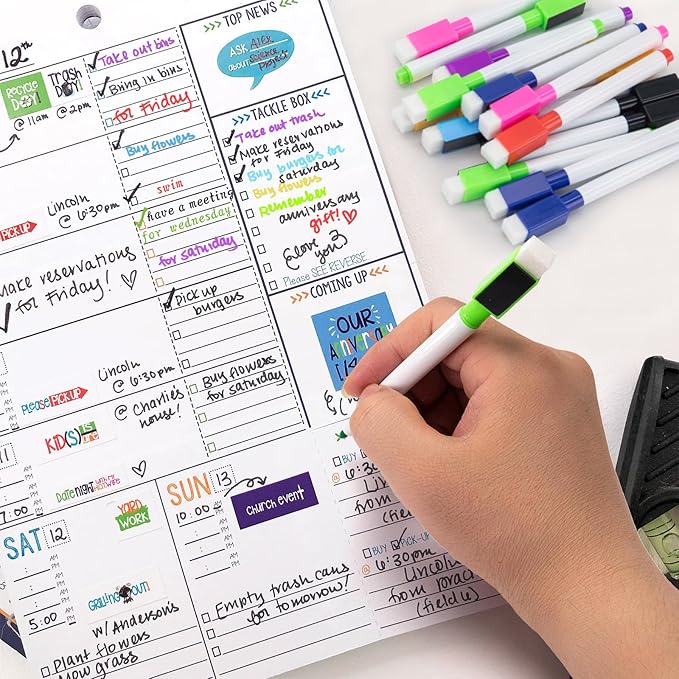 12th
RECYCLE DAY!
@ 11am
Trash DAY!
@ 2pm
PICK UP
Lincoln
@ 6:30pm
Make reservations
for Friday!
Lincoln
@ 6:30pm
Please PICK UP
@ Charlie's
house!
KID(S)
11
AM
PM
7:00
Date Night
YARD
WORK
SAT 12
5:00
GRILLING OUT!
w/ Anderson's
Plant flowers
Mow grass
Take out bins
Bring in bins
for Friday
Buy flowers
swim
have a meeting
for wednesday
for saturday
Pick up
burgers
Buy flowers
for saturday
SUN 13
10:00
church event
Empty trash cans
for tomorrow!
>>> TOP NEWS <<<
ASK Alex
about science
project
>>> TACKLE BOX <<<
Take out trash
Make reservations
for Friday
Buy burgers for
saturday
Buy flowers
Remember
anniversary
gift!
{love
you}
Please SEE REVERSE
>>> COMING UP <<<
OUR
Anniversary
BUY
Lincoln
from
(field
BUY PICK-UP
@ 6:30pm
Lincoln
from
(field 6)